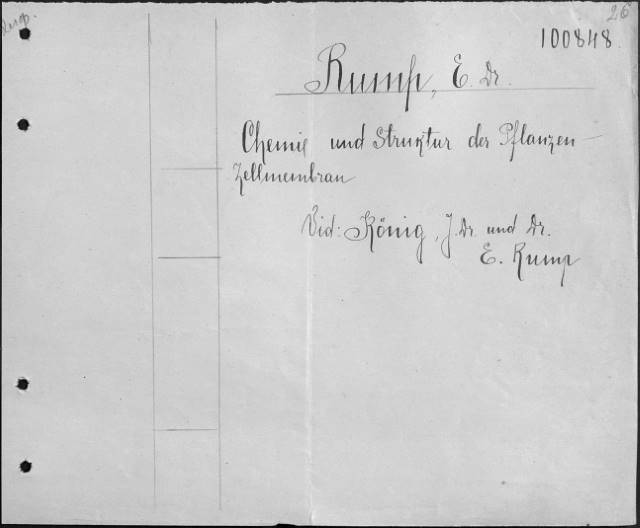 Rump.
26
100848
Rump, E. Dr.
Chemie und Struktur der Pflanzen-
Zellmembran
Vid: König, J. Dr. und Dr.
E. Rump